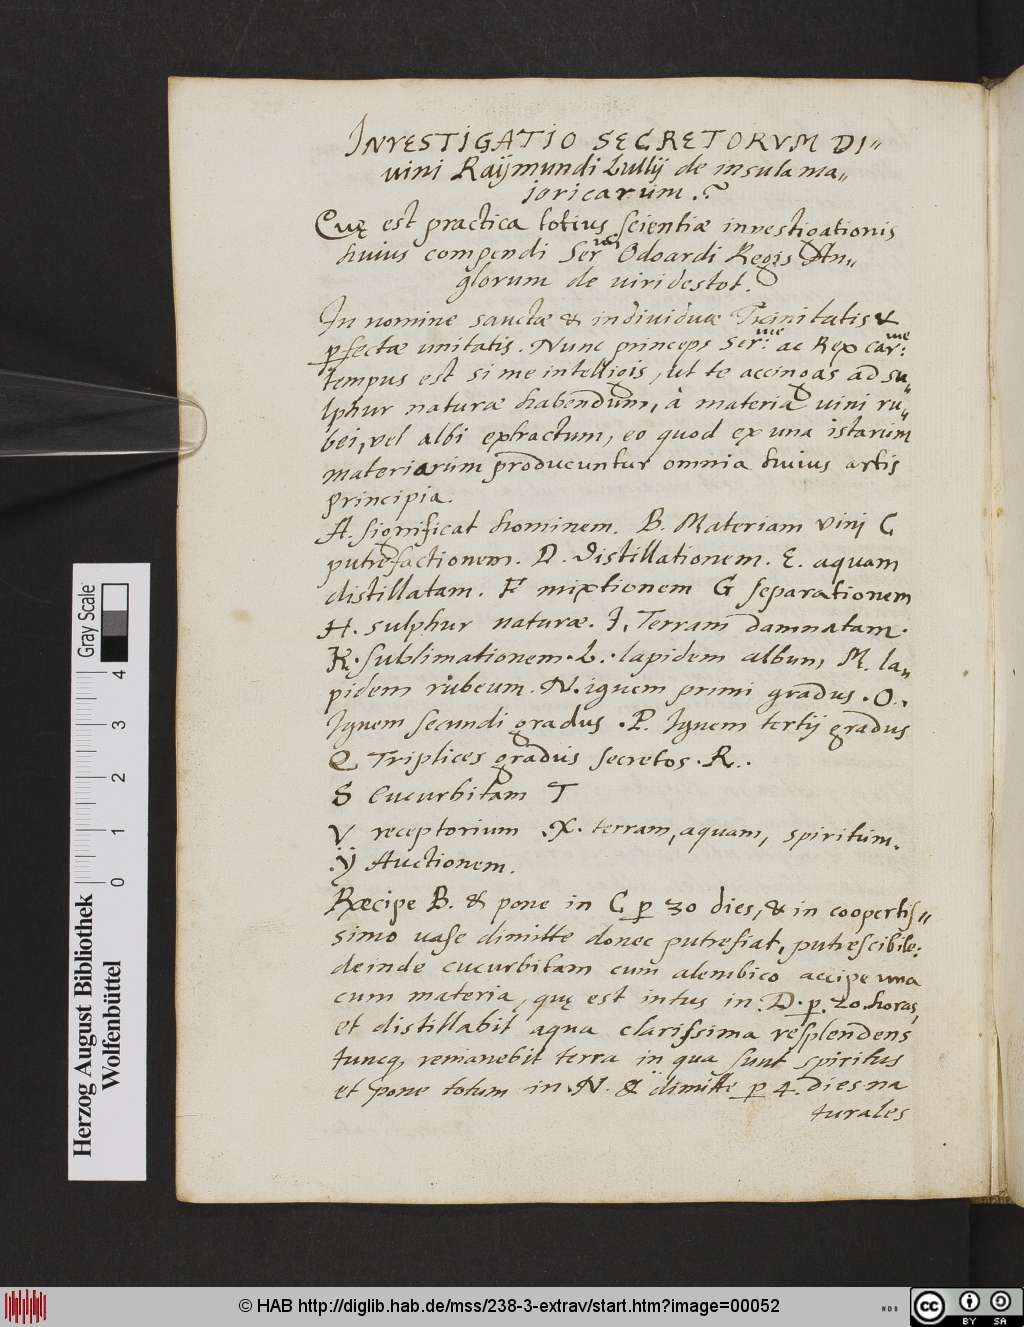 INVESTIGATIO SECRETORVM DI„
uini Raÿmundi Lullÿ de insula ma„
joricarum.
Cuę est practica totius scientiæ investigationis
huius compendi Ser.mi Odoardi Regis An„
glorum de viridestot.
In nomine sanctæ & individuæ Trinitatis &
pfectæ unitatis. Nunc princeps Ser:me ac Rex car:me
tempus est si me intelligis, ut te accingas ad su„
lphur naturæ habendum, à materia uini ru„
bei, vel albi extractum, eo quod ex una istarum
materiarum producuntur omnia huius artis
principia.
A. significat hominem. B. Materiam vini C
putrefactionem. D. Distillationem. E. aquam
distillatam. F mixtionem G separationem
H. sulphur naturæ. I. Terram damnatam.
K. sublimationem. L. lapidem album, M. la„
pidem rubeum. N. ignem primi gradus. O.
Ignem secundi gradus. P. Ignem tertij gradus
Q Triplices gradus secretos. R..
S Cucurbitam T
V receptorium .X. terram, aquam, spiritum.
.Ÿ Auctionem.
Ræcipe B. & pone in C p 30 dies, & in coopertis„
simo uase dimitte donec putrefiat, putrescibile:
deinde cucurbitam cum alembico accipe una
cum materia, quę est intus in .D. p. 20. horas,
et distillabit aqua clarissima resplendens
tuncq, remanebit terra in qua sunt spiritus
et pone totum in .N. & dimitte p 4. dies na
turales
Gray Scale
0 1 2 3 4
Herzog August Bibliothek
Wolfenbüttel
© HAB http://diglib.hab.de/mss/238-3-extrav/start.htm?image=00052
cc BY SA